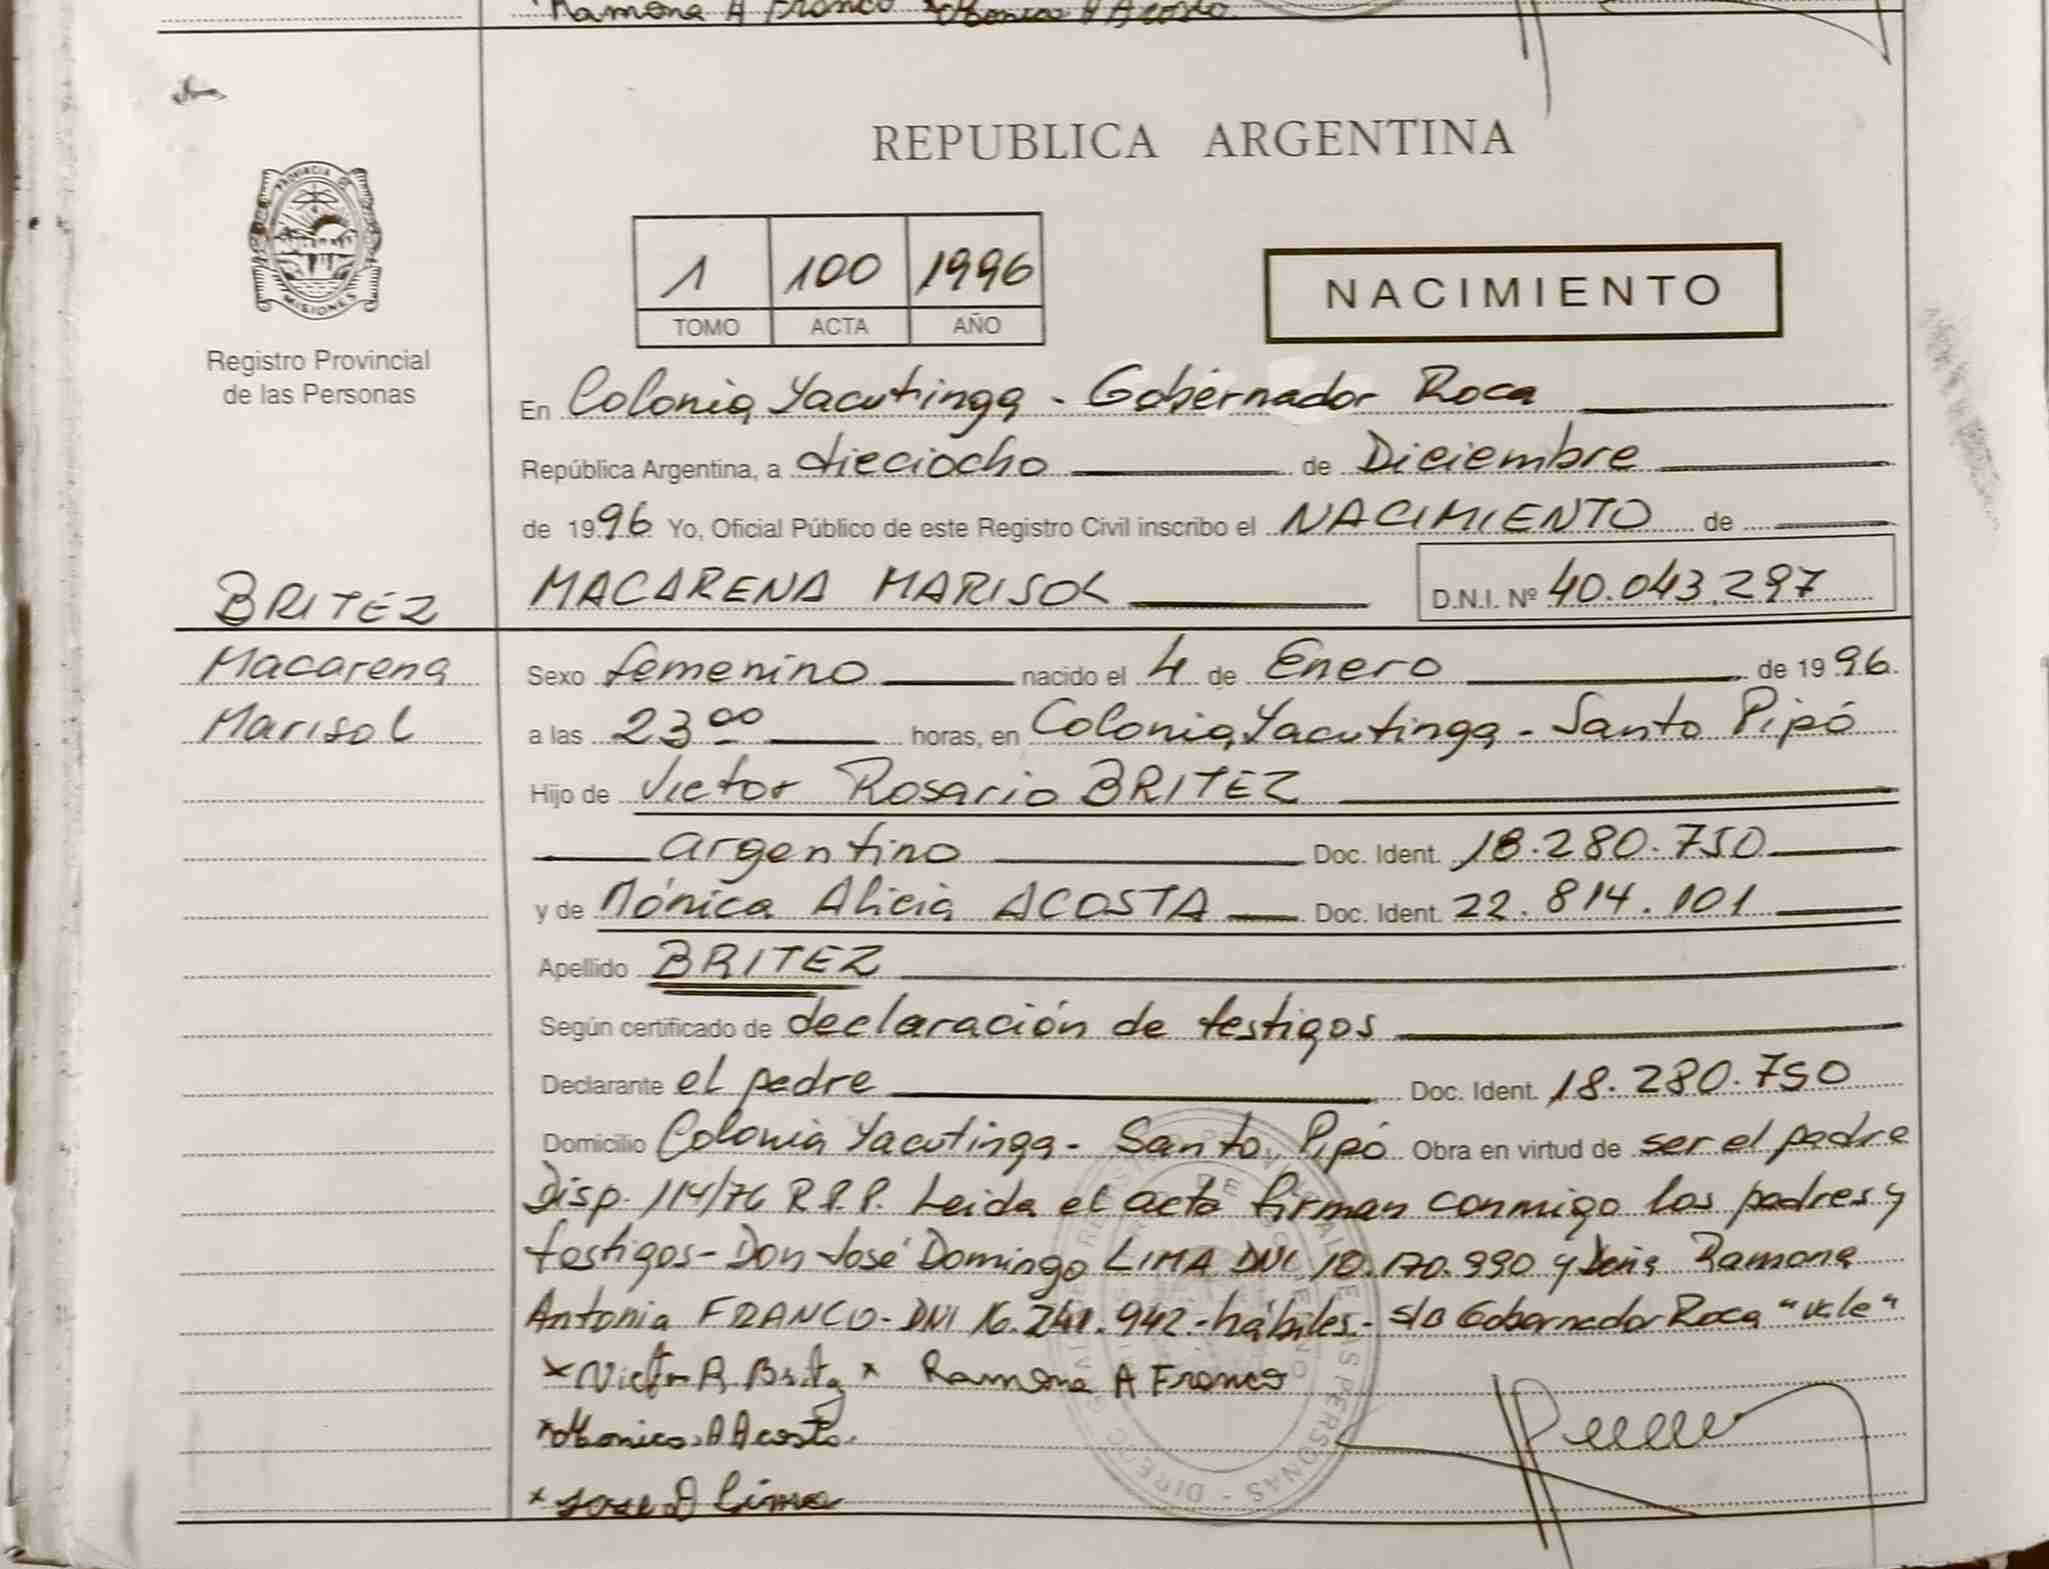 Ramona A Franco Monica A Acosta
REPUBLICA ARGENTINA
PROVINCIA DE
MISIONES
Registro Provincial
de las Personas
1 100 1996
TOMO ACTA AÑO
NACIMIENTO
En Colonia Yacutinga - Gobernador Roca
República Argentina, a dieciocho de Diciembre
de 1996 Yo, Oficial Público de este Registro Civil inscribo el NACIMIENTO de
BRITEZ
MACARENA MARISOL D.N.I. Nº 40.043.297
Macarena
Marisol
Sexo femenino nacido el 4 de Enero de 1996.
a las 23 00 horas, en Colonia Yacutinga - Santo Pipó
Hijo de Victor Rosario BRITEZ
argentino Doc. Ident. 18.280.750
y de Mónica Alicia ACOSTA Doc. Ident. 22.814.101
Apellido BRITEZ
Según certificado de declaración de testigos
Declarante el padre Doc. Ident. 18.280.750
Domicilio Colonia Yacutinga - Santo Pipó Obra en virtud de ser el padre
Disp. 114/76 R.P.P. Leida el acta firman conmigo los padres y
testigos - Don José Domingo LIMA DNI 10.170.990 y Doña Ramona
Antonia FRANCO - DNI 16.241.942.- hábiles.- s/b Gobernador Roca "vale"
x Victor R Britez x Ramona A Franco
x Monica A Acosta
x Jose D Lima